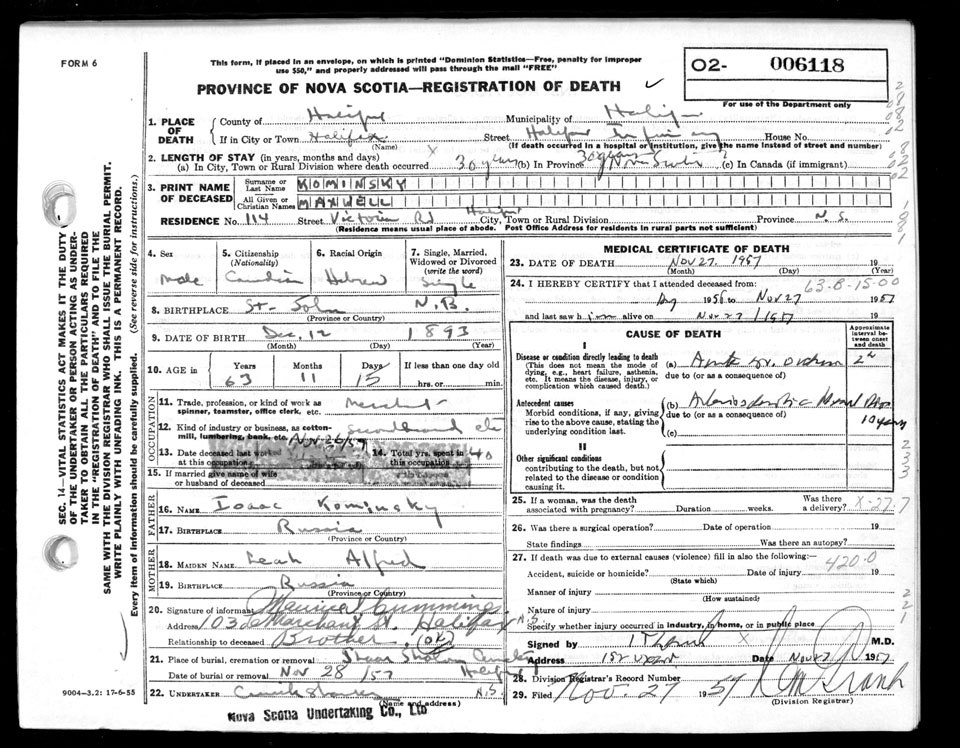 FORM 6
This form, if placed in an envelope, on which is printed "Dominion Statistics—Free, penalty for improper
use $50," and properly addressed will pass through the mail "FREE"
PROVINCE OF NOVA SCOTIA—REGISTRATION OF DEATH
O2- 006118
For use of the Department only
SEC. 14—VITAL STATISTICS ACT MAKES IT THE DUTY
OF THE UNDERTAKER OR PERSON ACTING AS UNDER-
TAKER TO OBTAIN ALL THE PARTICULARS REQUIRED
IN THE "REGISTRATION OF DEATH" AND TO FILE THE
SAME WITH THE DIVISION REGISTRAR WHO SHALL ISSUE THE BURIAL PERMIT.
WRITE PLAINLY WITH UNFADING INK. THIS IS A PERMANENT RECORD.
Every item of information should be carefully supplied. (See reverse side for instructions.)
1. PLACE OF DEATH
County of Halifax Municipality of Halifax
If in City or Town Halifax Street Halifax Infirmary House No.
(Name) (If death occurred in a hospital or institution, give the name instead of street and number)
2. LENGTH OF STAY (in years, months and days)
(a) In City, Town or Rural Division where death occurred 30 years (b) In Province 30 years (c) In Canada (if immigrant)
3. PRINT NAME OF DECEASED
Surname or Last Name KOMINSKY
All Given or Christian Names MAXWELL
RESIDENCE No. 114 Street Victoria Rd City, Town or Rural Division Halifax Province N.S.
(Residence means usual place of abode. Post Office Address for residents in rural parts not sufficient)
4. Sex 5. Citizenship (Nationality) 6. Racial Origin 7. Single, Married, Widowed or Divorced (write the word)
Male Canadian Hebrew Single
8. BIRTHPLACE St. John N.B.
(Province or Country)
9. DATE OF BIRTH Dec. 12 1893
(Month) (Day) (Year)
10. AGE in Years Months Days If less than one day old
63 11 15 hrs. or min.
OCCUPATION
11. Trade, profession, or kind of work as spinner, teamster, office clerk, etc. Merchant
12. Kind of industry or business, as cotton-mill, lumbering, bank, etc.
13. Date deceased last worked at this occupation Nov 26/57
14. Total yrs. spent in this occupation 40
15. If married give name of wife or husband of deceased
FATHER
16. NAME Isaac Kominsky
17. BIRTHPLACE Russia
(Province or Country)
MOTHER
18. MAIDEN NAME Leah Alfred
19. BIRTHPLACE Russia
(Province or Country)
20. Signature of informant Maurice Cummings
Address 103 LeMarchant St. Halifax N.S.
Relationship to deceased Brother (OK)
21. Place of burial, cremation or removal Cemetery
Date of burial or removal Nov 28/57 Halifax
22. UNDERTAKER N.S.
(Name and address)
Nova Scotia Undertaking Co., Ltd
9004—3.2: 17-6-55
MEDICAL CERTIFICATE OF DEATH
23. DATE OF DEATH Nov 27. 1957 19
(Month) (Day) (Year)
24. I HEREBY CERTIFY that I attended deceased from: 63-8-15-00
1956 to Nov 27 1957
and last saw him alive on Nov 27 1957
CAUSE OF DEATH
Approximate interval between onset and death
I
Disease or condition directly leading to death
(This does not mean the mode of dying, e.g., heart failure, asthenia, etc. It means the disease, injury, or complication which caused death.)
(a)
due to (or as a consequence of)
Antecedent causes
Morbid conditions, if any, giving rise to the above cause, stating the underlying condition last.
(b)
due to (or as a consequence of) 10 years
(c)
II
Other significant conditions
contributing to the death, but not related to the disease or condition causing it.
25. If a woman, was the death associated with pregnancy? Duration weeks. Was there a delivery? X-27
26. Was there a surgical operation? Date of operation 19
State findings Was there an autopsy?
27. If death was due to external causes (violence) fill in also the following:— 420.0
Accident, suicide or homicide? Date of injury 19
(State which)
Manner of injury
(How sustained)
Nature of injury
Specify whether injury occurred in industry, in home, or in public place
Signed by M.D.
Address Date Nov 27 1957
28. Division Registrar's Record Number
29. Filed Nov. 27 1957
(Division Registrar)